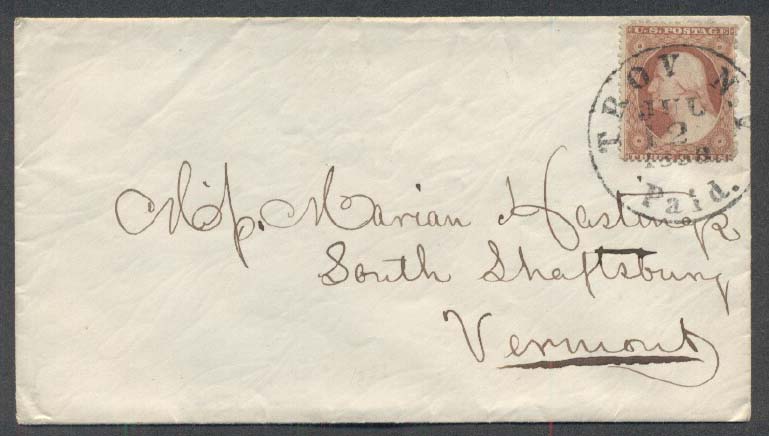 U.S. POSTAGE
TROY N.Y
JUL
12
Paid.
Miſs. Marian Hastings
South Shaftsbury
Vermont